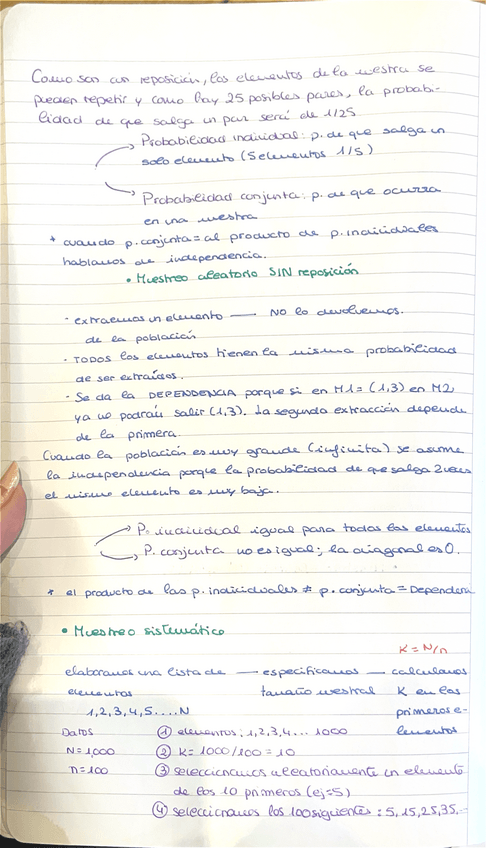 Como son con reposición, los elementos de la mestra se
pueden repetir y como hay 25 posibles pares, la probabi-
lidad de que salga un par será de 1/25
Probabilidad individual: p. de que salga un
solo elemento (5 elementos 1/5)
Probabilidad conjunta: p. de que ocurra
en una mestra
* cuando p. conjunta = al producto de p. individuales
hablamos de independencia.
• Muestreo aleatorio SIN reposición
· extraemos un elemento — NO lo devolvemos.
de la población
· TODOS los elementos tienen la misma probabilidad
de ser extraídos.
· Se da la DEPENDENCIA porque si en M1 = (1,3) en M2
ya no podrán salir (1,3). La segunda extracción depende
de la primera.
Cuando la población es muy grande (infinita) se asume
la independencia porque la probabilidad de que salga 2 veces
el mismo elemento es muy baja.
P. individual igual para todos los elementos
P. conjunta no es igual; la diagonal es 0.
* el producto de las p. individuales ≠ p. conjunta = Dependen
• Muestreo sistemático
K = N/n
elaboramos una lista de — especificamos — calculamos
elementos tamaño mestral K en los
1,2,3,4,5....N primeros e-
lementos
Datos ① elementos: 1,2,3,4... 1000
N=1,000 ② K= 1000/100 = 10
n=100 ③ seleccionamos aleatoriamente un elemento
de los 10 primeros (ej=5)
④ seleccionamos los 100 siguientes: 5,15,25,35,..